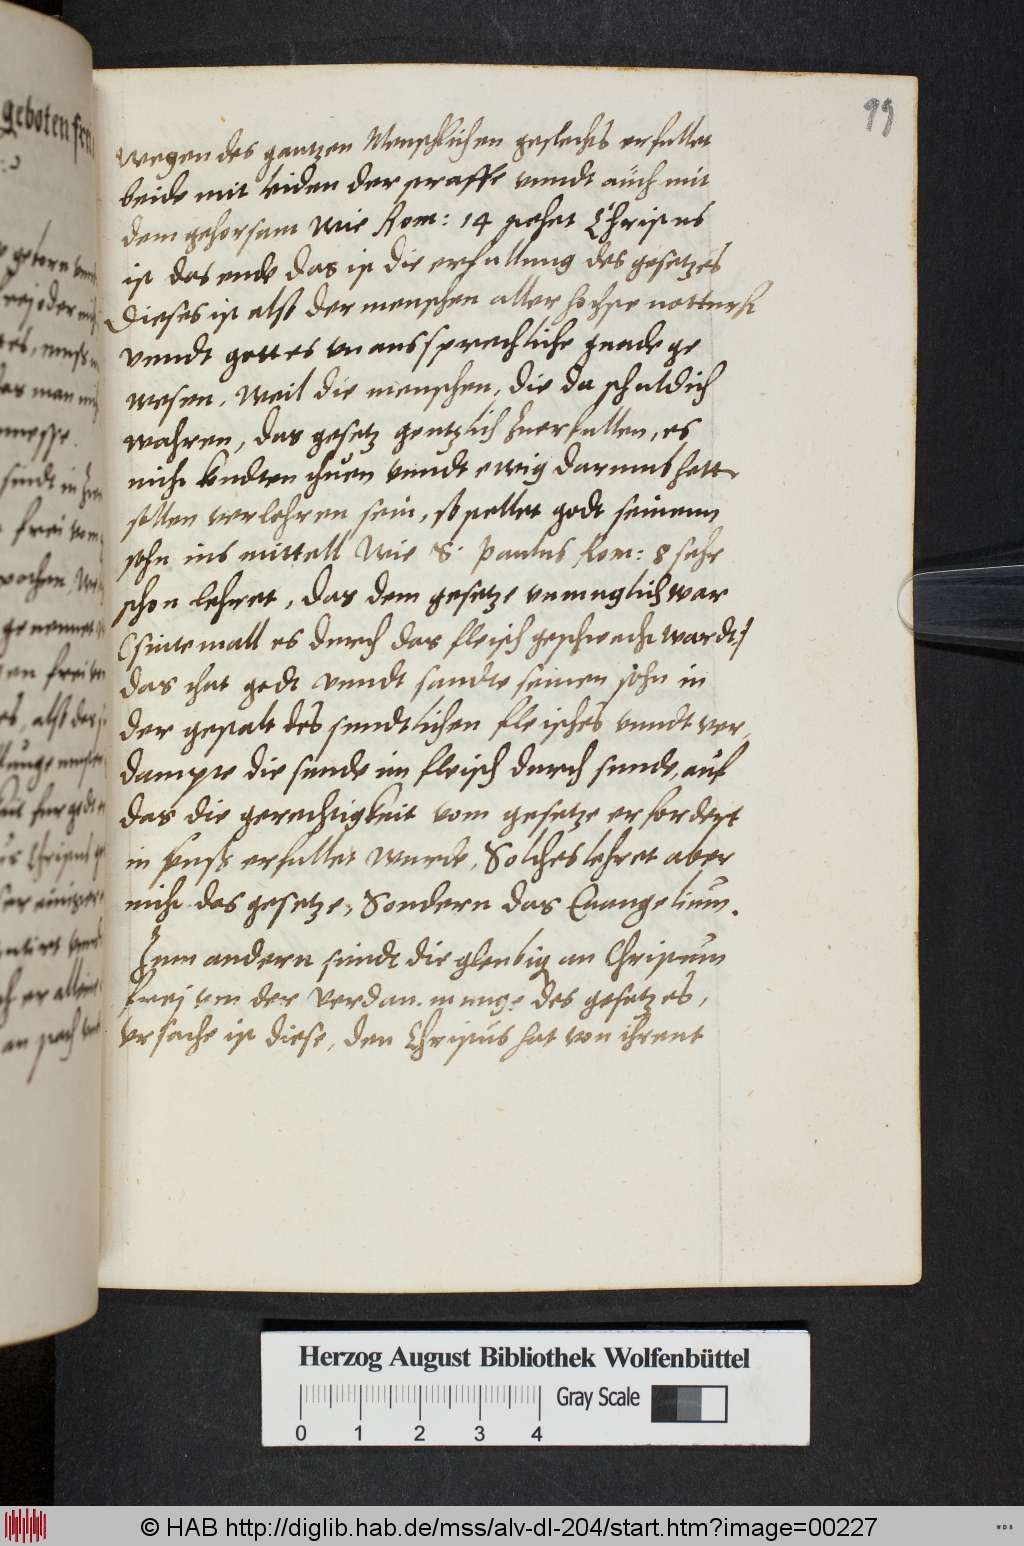 99
wegen des gantzen Menschlichen geslechts erfullet
beide mit leiden der straffe vnndt auch mit
dem gehorsam Wie Rom: 14 stehet Christus
ist das ende das ist die erfullung des gesetzes
Dieses ist alß der menschen aller hochste notturft
vnndt gottes vnaussprechliche gnade ge
wesen, Weil die menschen, die da schuldich
wahren, das gesetz gentzlich zuerfullen, es
nicht kondten thuen vnndt ewig darumb hett
sollen verlohren sein, so stellet godt seinenn
sohn ins mittell Wie S. Paulus Rom: 8 sehr
schon lehret, das dem gesetze vnmuglich war
(sintemall es durch das fleisch geschwecht wardt)
das that godt vnndt sandte seinen sohn in
der gestalt des sundtlichen fleisches vnndt ver,
dampte die sunde im fleisch durch sunde, auf
das die gerechtigkeit vom gesetze erfordert
in erfullet wurde, Solches lehret aber
nicht das gesetze, Sondern das Euangelium.
Zum andern sindt die gleubig an Christum
frej von der verdammung des gesetzes,
vrsache ist diese, den Christus hat von
geboten frei
Herzog August Bibliothek Wolfenbüttel
Gray Scale
0 1 2 3 4
© HAB http://diglib.hab.de/mss/alv-dl-204/start.htm?image=00227